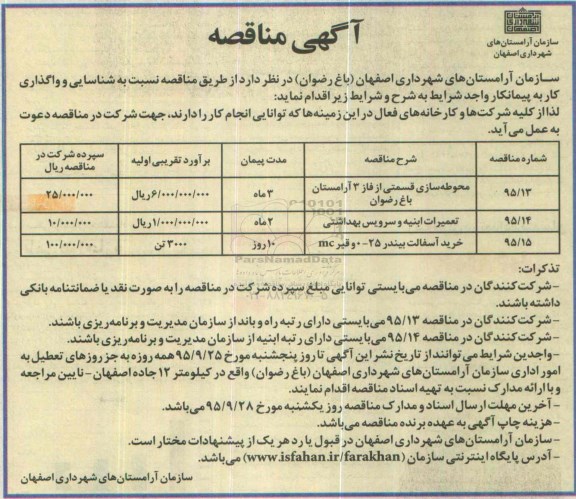 سازمان آرامستان‌های
شهرداری اصفهان
آگهی مناقصه
سازمان آرامستان‌های شهرداری اصفهان (باغ رضوان) در نظر دارد از طریق مناقصه نسبت به شناسایی و واگذاری
کار به پیمانکار واجد شرایط به شرح و شرایط زیر اقدام نماید:
لذا از کلیه شرکت‌ها و کارخانه‌های فعال در این زمینه‌ها که توانایی انجام کار را دارند، جهت شرکت در مناقصه دعوت
به عمل می‌آید.
شماره مناقصه شرح مناقصه مدت پیمان برآورد تقریبی اولیه سپرده شرکت در مناقصه ریال
۹۵/۱۳ محوطه‌سازی قسمتی از فاز ۳ آرامستان باغ رضوان ۳ ماه ۶/۰۰۰/۰۰۰/۰۰۰ ریال ۲۵/۰۰۰/۰۰۰
۹۵/۱۴ تعمیرات ابنیه و سرویس بهداشتی ۲ماه ۱/۰۰۰/۰۰۰/۰۰۰ ریال ۱۰/۰۰۰/۰۰۰
۹۵/۱۵ خرید آسفالت بیندر ۲۵-۰ و قیر mc ۱۰ روز ۳۰۰۰ تن ۱۰۰/۰۰۰/۰۰۰
ParsNamadData
تذکرات:
-شرکت‌کنندگان در مناقصه می‌بایستی توانایی مبلغ سپرده شرکت در مناقصه را به صورت نقد یا ضمانتنامه بانکی
داشته باشند.
-شرکت‌کنندگان در مناقصه ۹۵/۱۳ می‌بایستی دارای رتبه راه و باند از سازمان مدیریت و برنامه‌ریزی باشند.
-شرکت‌کنندگان در مناقصه ۹۵/۱۴ می‌بایستی دارای رتبه ابنیه از سازمان مدیریت و برنامه‌ریزی باشند.
-واجدین شرایط می‌توانند از تاریخ نشر این آگهی تا روز پنجشنبه مورخ ۹۵/۹/۲۵ همه روزه به جز روزهای تعطیل به
امور اداری سازمان آرامستان‌های شهرداری اصفهان (باغ رضوان) واقع در کیلومتر ۱۲ جاده اصفهان - نایین مراجعه
و با ارائه مدارک نسبت به تهیه اسناد مناقصه اقدام نمایند.
-آخرین مهلت ارسال اسناد و مدارک مناقصه روز یکشنبه مورخ ۹۵/۹/۲۸ می‌باشد.
-هزینه چاپ آگهی به عهده برنده مناقصه می‌باشد.
-سازمان آرامستان‌های شهرداری اصفهان در قبول یا رد هر یک از پیشنهادات مختار است.
-آدرس پایگاه اینترنتی سازمان (www.isfahan.ir/farakhan) می‌باشد.
سازمان آرامستان‌های شهرداری اصفهان